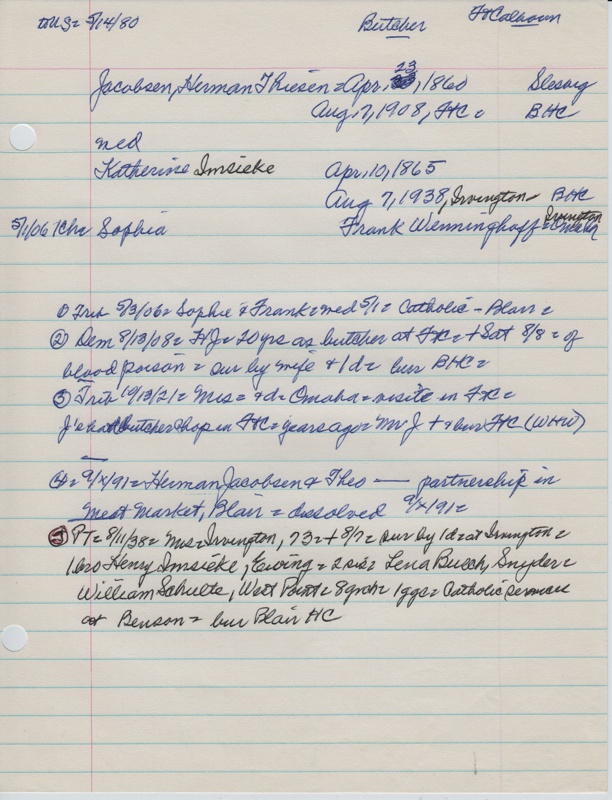 to US = 5/14/80 Butcher Ft Calhoun
Jacobsen, Herman Thiesen = Apr, 23, 1860 Slesvig
Aug, 7, 1908, FC = BHC
med
Katherine Imsieke Apr, 10, 1865
Aug 7, 1938, Irvington - BHC
Irvington
5/1/06 1Ch = Sophia Frank Wenninghoff = Omaha
① Trib 5/3/06 = Sophie & Frank = med 5/1 = Catholic - Blair =
② Dem 8/13/08 = HJ = 20 yrs as butcher at FC = + Sat 8/8 = of
blood poison = sur by wife + 1d = bur BHC =
③ Trib 10/13/21 = Mrs = + d = Omaha = visite in FC =
J's had butcher shop in FC = years ago = Mr J + + bur FC (WHW)
④ = 9/X/91 = Herman Jacobsen & Theo — partnership in
Meat Market, Blair = dissolved 9/X/91 =
① PT = 8/11/38 = Mrs = Irvington, 73 = + 8/7 = sur by 1d = at Irvington =
1 bro Henry Imsieke, Ewing = 2 sis = Lena Busch, Snyder =
William Schulte, West Point = 8 grch = 1 ggs = Catholic services
at Benson = bur Blair HC